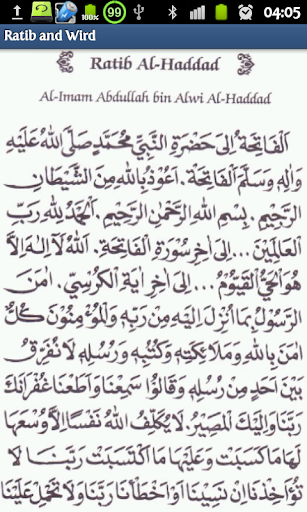 99
04:05
Ratib and Wird
Ratib Al-Haddad
Al-Imam Abdullah bin Alwi Al-Haddad
اَلْفَاتِحَةُ اِلَى حَضْرَةِ النَّبِيِّ مُحَمَّدٍ صَلَّى اللهُ عَلَيْهِ
وَاٰلِهِ وَسَلَّمَ اَلْفَاتِحَةَ. اَعُوْذُ بِاللهِ مِنَ الشَّيْطَانِ
الرَّجِيْمِ. بِسْمِ اللهِ الرَّحْمٰنِ الرَّحِيْمِ. اَلْحَمْدُ لِلهِ رَبِّ
الْعَالَمِيْنَ ...اِلَى اٰخِرِ سُوْرَةِ الْفَاتِحَةِ. اَللهُ لَا اِلٰهَ اِلَّا
هُوَ الْحَيُّ الْقَيُّوْمُ ...اِلَى اٰخِرِ اٰيَةِ الْكُرْسِيِّ. اٰمَنَ
الرَّسُوْلُ بِمَا اُنْزِلَ اِلَيْهِ مِنْ رَبِّهِ وَالْمُؤْمِنُوْنَ كُلٌّ
اٰمَنَ بِاللهِ وَمَلَائِكَتِهِ وَكُتُبِهِ وَرُسُلِهِ لَا نُفَرِّقُ
بَيْنَ اَحَدٍ مِنْ رُسُلِهِ وَقَالُوْا سَمِعْنَا وَاَطَعْنَا غُفْرَانَكَ
رَبَّنَا وَاِلَيْكَ الْمَصِيْرُ. لَا يُكَلِّفُ اللهُ نَفْسًا اِلَّا وُسْعَهَا
لَهَا مَا كَسَبَتْ وَعَلَيْهَا مَا اكْتَسَبَتْ رَبَّنَا لَا
تُؤَاخِذْنَا اِنْ نَسِيْنَا اَوْ اَخْطَأْنَا رَبَّنَا وَلَا تَحْمِلْ عَلَيْنَا